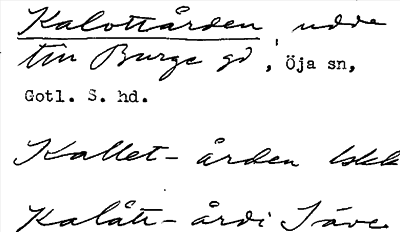 Kalottården, udde
tin Burge gd, Öja sn,
Gotl. S. hd.
Kallet-ården Iskk
Kalått-årdi Säve